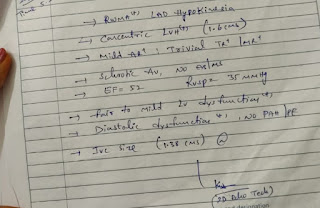 → RWMA(+), LAD Hypokinesia
→ Concentric LVH(+) (1.6 cms)
→ Mild AR(+), Trivial TR(+) / MR(+)
→ Sclerotic AV, NO
→ EF = 52 RVSP = 35 mmHg
→ Fair to mild LV dysfunction(+)
→ Diastolic dysfunction(+), NO PAH / PE
→ IVC size (1.38 cms) (N)
(2D Echo Tech)